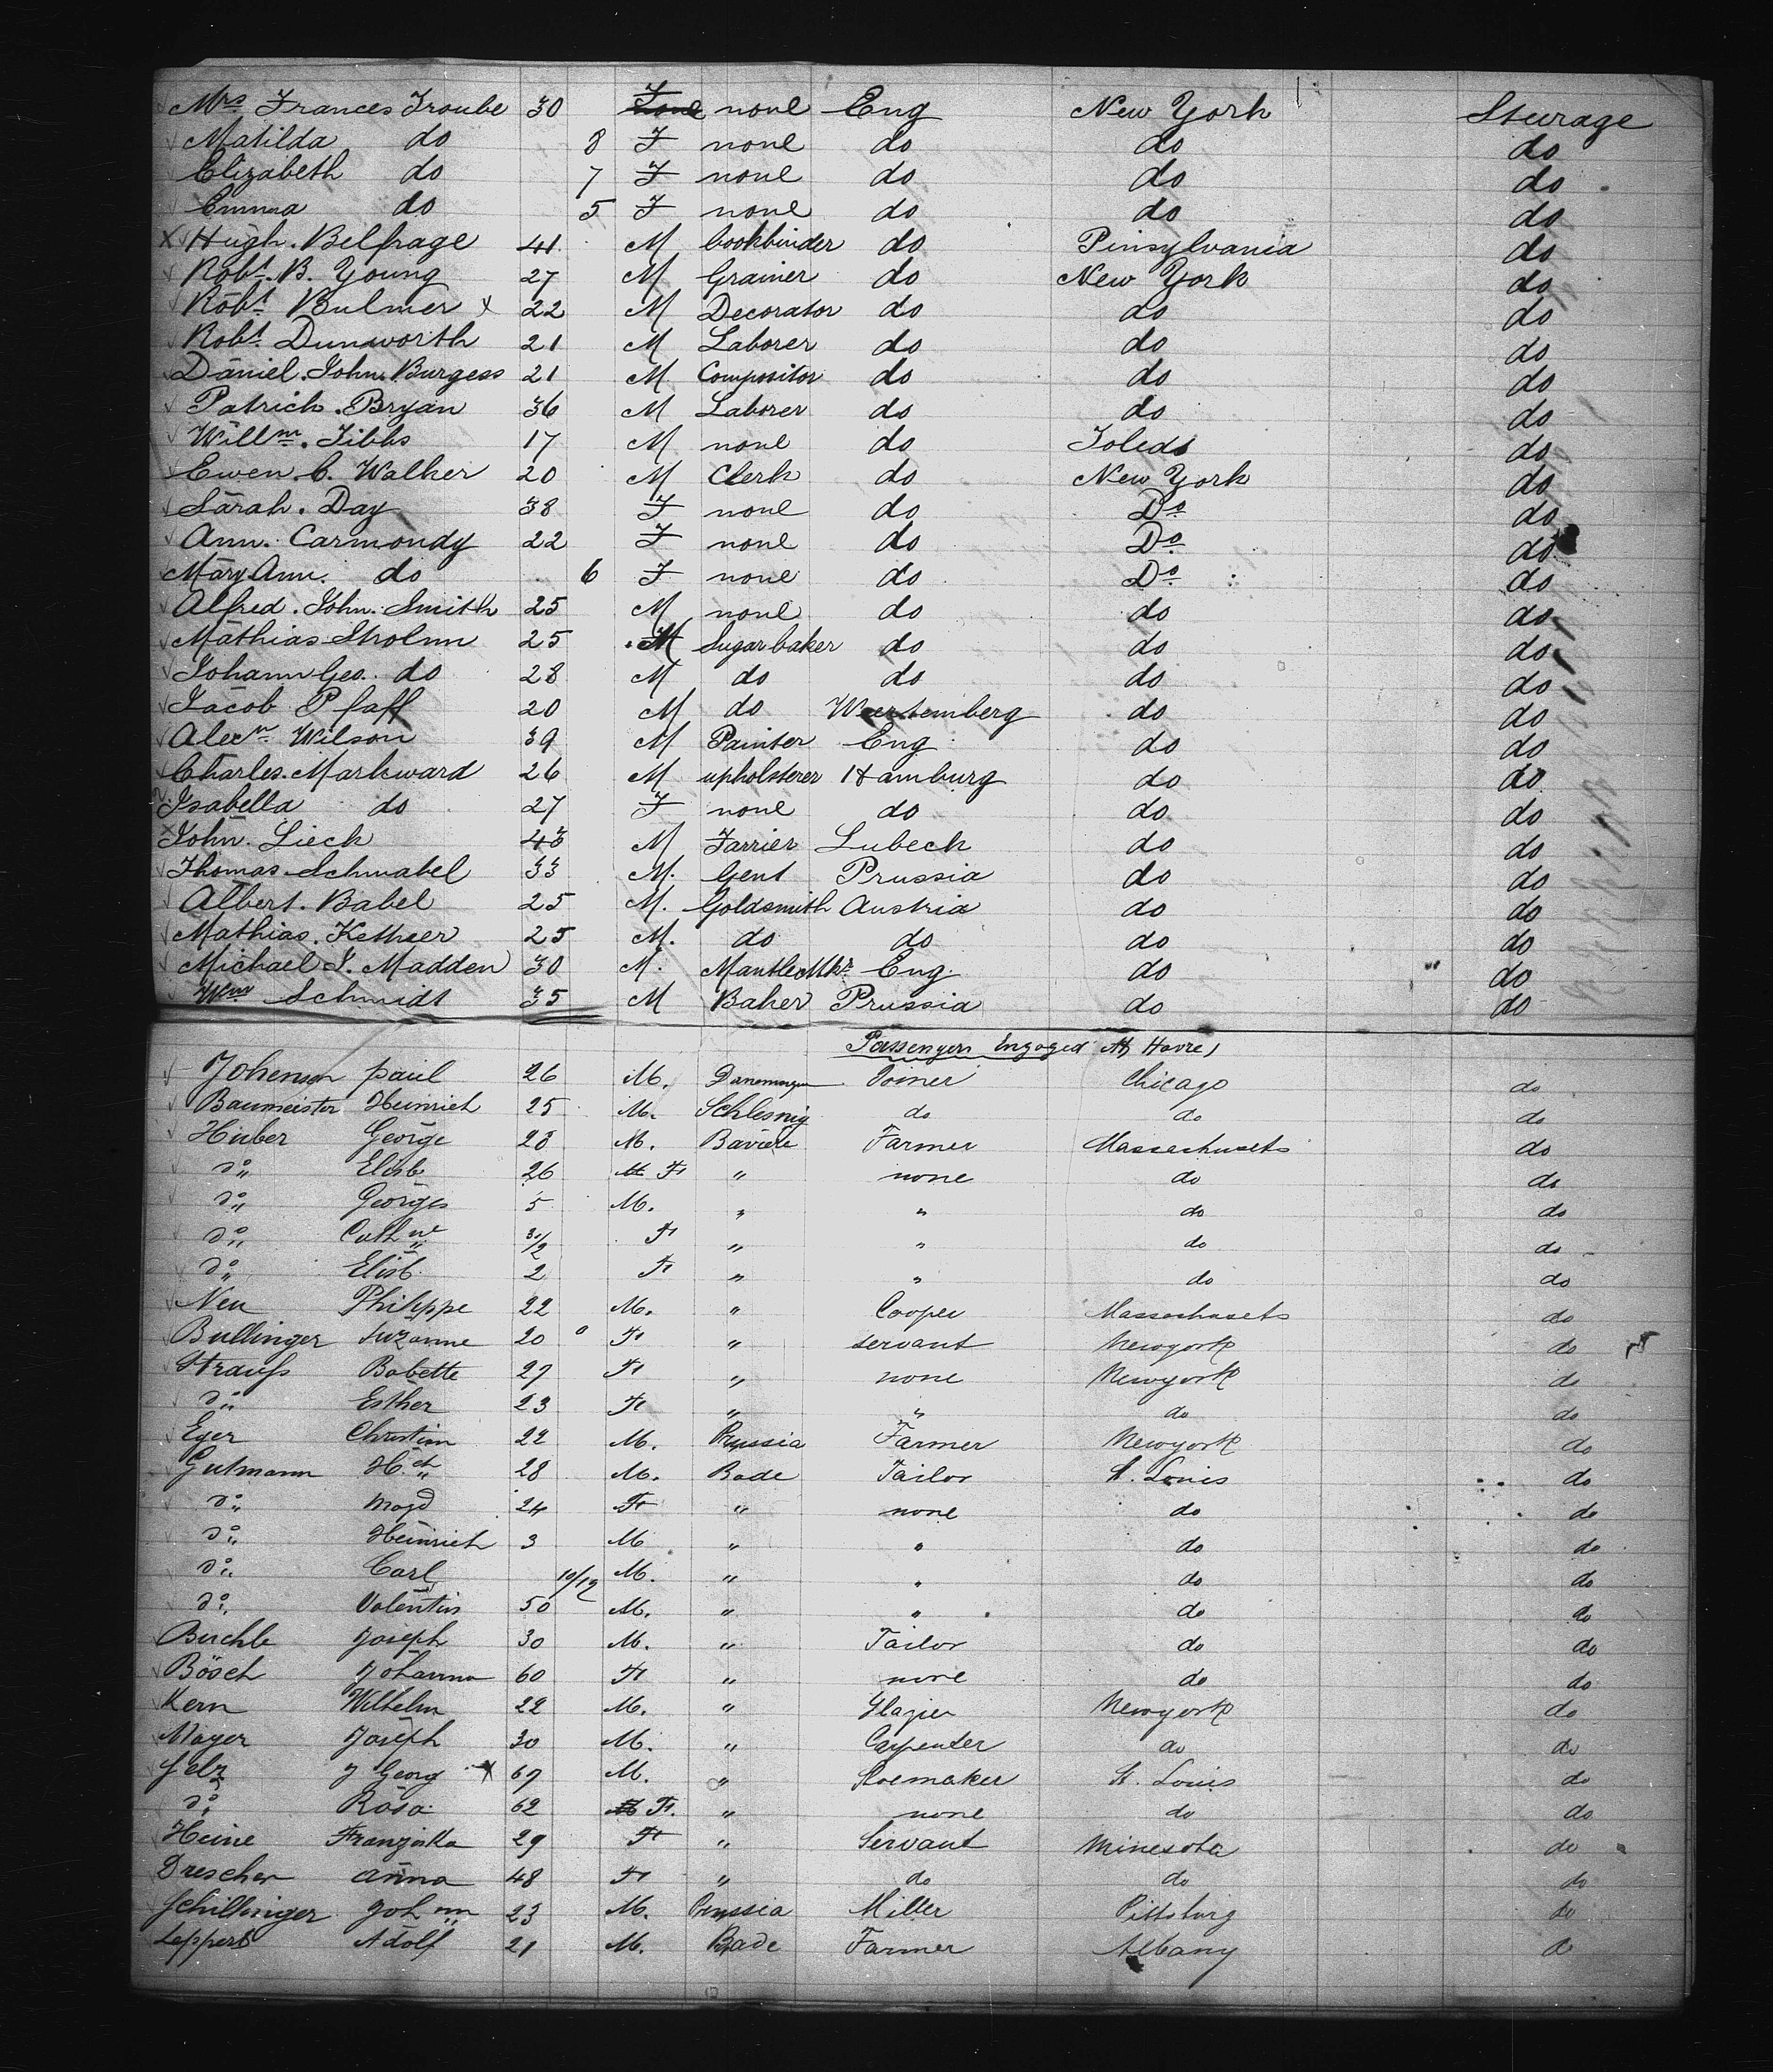 Mrs Frances Troube 30 F none Eng New York Steurage
Matilda do 8 F none do do do
Elizabeth do 7 F none do do do
Emma do 5 F none do do do
X Hugh. Belfrage 41 M bookbinder do Pinsylvania do
Robt. B. Young 27 M Grainer do New York do
Robt Bulmer x 22 M Decorator do do do
Robt. Dunworth 21 M Laborer do do do
Daniel. John. Burgess 21 M Compositor do do do
Patrick. Bryan 36 M Laborer do do do
Willm. Tibbs 17 M none do Toledo do
Ewen. C. Walker 20 M Clerk do New York do
Sarah. Day 38 F none do Do do
Ann. Carmondy 22 F none do Do do
Mary Ann. do 6 F none do Do do
Alfred. John. Smith 25 M none do do do
Mathias Strolnn 25 M Sugar baker do do do
Johann Geo. do 28 M do do do do
Jacob Pfaff 20 M do Wurtemberg do do
Alecn Wilson 39 M Painter Eng do do
Charles. Markward 26 M upholsterer Hamburg do do
Isabella do 27 F none do do do
X John. Lieck 43 M Farrier Lubeck do do
Thomas Schnabel 33 M. Gent Prussia do do
Albert. Babel 25 M. Goldsmith Austria do do
Mathias. 25 M. do do do do
Michael J. Madden 30 M. Mantle Mkr Eng. do do
Wm Schmidt 35 M Baker Prussia do do
Passengers Engaged At Havre
Johenson paul 26 M. Joiner Chicago do
Baumeister Heinrich 25 M. Schlesnig do do do
Huber George 28 M. Baviere Farmer Massachusets do
do " Elisb 26 F " none do do
do " Georges 5 M. " " do do
do " Cathne 3 1/2 F " " do do
do " Elisb. 2 F " " do do
Neu Philippe 22 M. " Cooper Massachusets do
Bullinger Suzanne 20 F " servant Newyork do
Strauss Babette 27 F " none Newyork do
do " Esther 23 F " " do do
Eger Christian 22 M. Prussia Farmer Newyork do
Gutmann Hch 28 M. Bade Tailor St. Louis do
do " Magd 24 F " none do do
do " Heinrich 3 M " " do do
do " Carl 10/12 M. " " do do
do " Valentin 50 M. " " do do
Buchle Joseph 30 M. " Tailor do do
Bösch Johanna 60 F " none do do
Kern Wilhelm 22 M. " Glazier Newyork do
Mayer Joseph 30 M. " Carpenter do do
Selz J Georg X 67 M. " Shoemaker St. Louis do
do Rosa 62 F. " none do do
Heine Franziska 29 F " Servant Minesota do
Drescher anna 48 F " do do do
Schillinger Joh nn 23 M. Prussia Miller Pittsburg do
Leppert Adolf 21 M. Bade Farmer Albany d